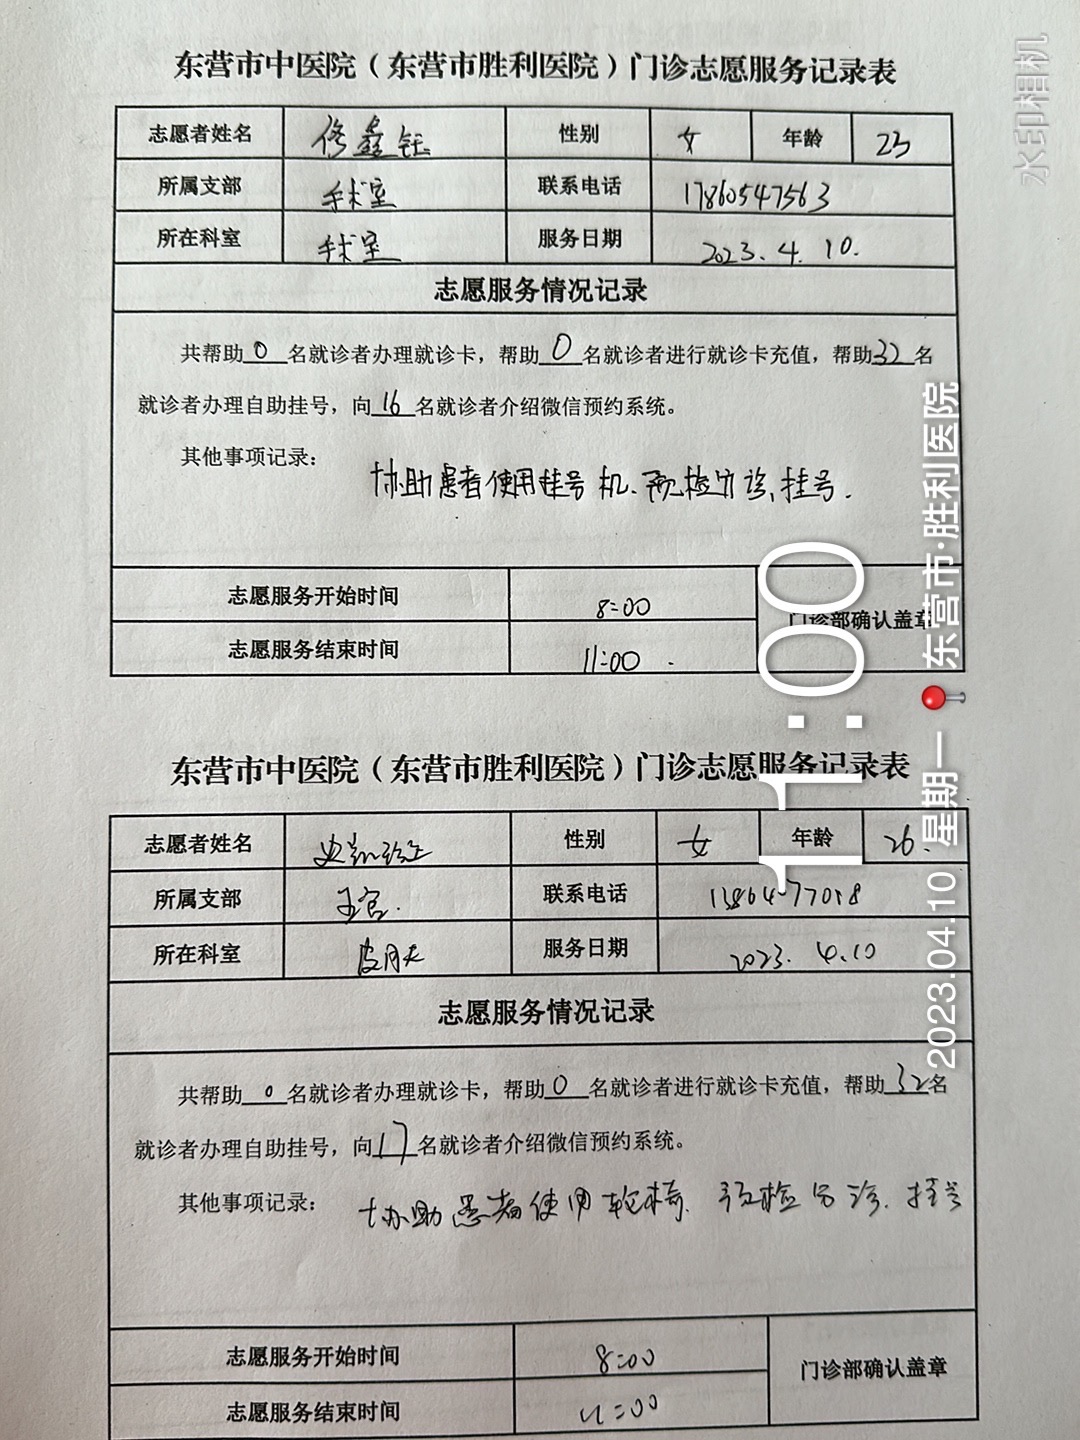 东营市中医院（东营市胜利医院）门诊志愿服务记录表
志愿者姓名 佟鑫钰 性别 女 年龄 23
所属支部 手术室 联系电话 17860547563
所在科室 手术室 服务日期 2023.4.10.
志愿服务情况记录
共帮助0名就诊者办理就诊卡，帮助0名就诊者进行就诊卡充值，帮助32名
就诊者办理自助挂号，向16名就诊者介绍微信预约系统。
其他事项记录：
协助患者使用挂号机、预检分诊、挂号.
志愿服务开始时间 8:00
门诊部确认盖章
志愿服务结束时间 11:00
东营市中医院（东营市胜利医院）门诊志愿服务记录表
志愿者姓名 性别 女 年龄 26.
所属支部 联系电话
所在科室 皮肤 服务日期 2023.4.10
志愿服务情况记录
共帮助0名就诊者办理就诊卡，帮助0名就诊者进行就诊卡充值，帮助32名
就诊者办理自助挂号，向17名就诊者介绍微信预约系统。
其他事项记录：
协助患者使用轮椅、预检分诊、挂号
志愿服务开始时间 8:00
门诊部确认盖章
志愿服务结束时间 11:00
11:00
2023.04.10 星期一 东营市·胜利医院
水印相机